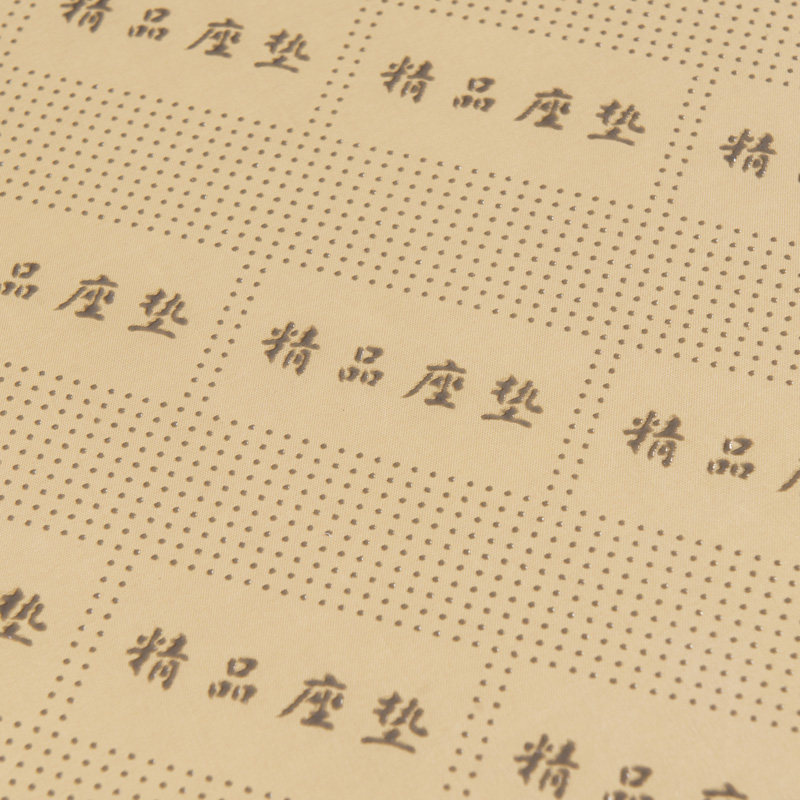 精品座垫
精品座垫
精
品座垫
精品座垫
精品座
垫
精品座垫
精品座